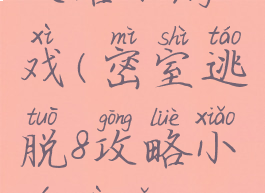 xì mì shì táo
戏(密室逃
tuō gōng lüè xiǎo
脱8攻略小